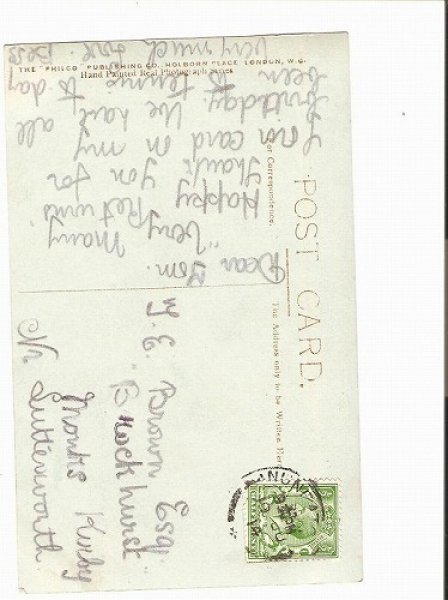 POST CARD.
For Correspondence.
The Address only to be Written Here
THE "PHILCO" PUBLISHING CO. HOLBORN PLACE LONDON, W.C.
Hand Painted Real Photograph Series
Dear Tom.
"Very many
Happy Returns
Thanks you for
your card on my
birthday. We have all
been to tennis to day
very much love. Bess
T. E. Brown Esq
"Brockhurst"
Monks Kirby
Nr Lutterworth